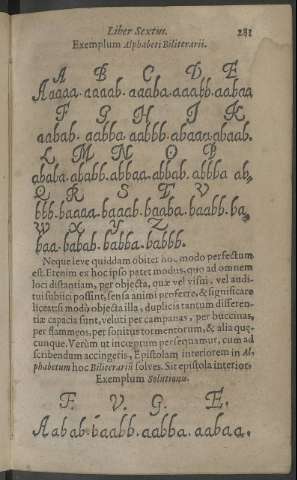 Liber Sextus. 281
Exemplum Alphabeti Biliterarii.
A B C D E
Aaaaa. aaaab. aaaba. aaabb. aabaa
F G H I K
aabab. aabba. aabbb. abaaa. abaab.
L M N O P
ababa. ababb. abbaa. abbab. abbba ab,
Q R S T V
bbb. baaaa. baaab. baaba. baabb. ba,
W X Y Z
baa. babab. babba. babbb.
Neque leve quiddam obiter hoc modo perfectum
est. Etenim ex hoc ipso patet modus, quo ad omnem
loci distantiam, per objecta, quæ vel visui, vel audi-
tui subiici possint, sensa animi proferre, & significare
liceat: si modò objecta illa, duplicis tantum differen-
tiæ capacia sunt, veluti per campanas, per buccinas,
per flammeos, per sonitus tormentorum, & alia quæ-
cunque. Verùm ut incœptum persequamur, cum ad
scribendum accingeris, Epistolam interiorem in Al-
phabetum hoc Biliterariū solves. Sit epistola interior,
Exemplum Solutionis.
F. V. G. E.
Aabab. baabb. aabba. aabaa.